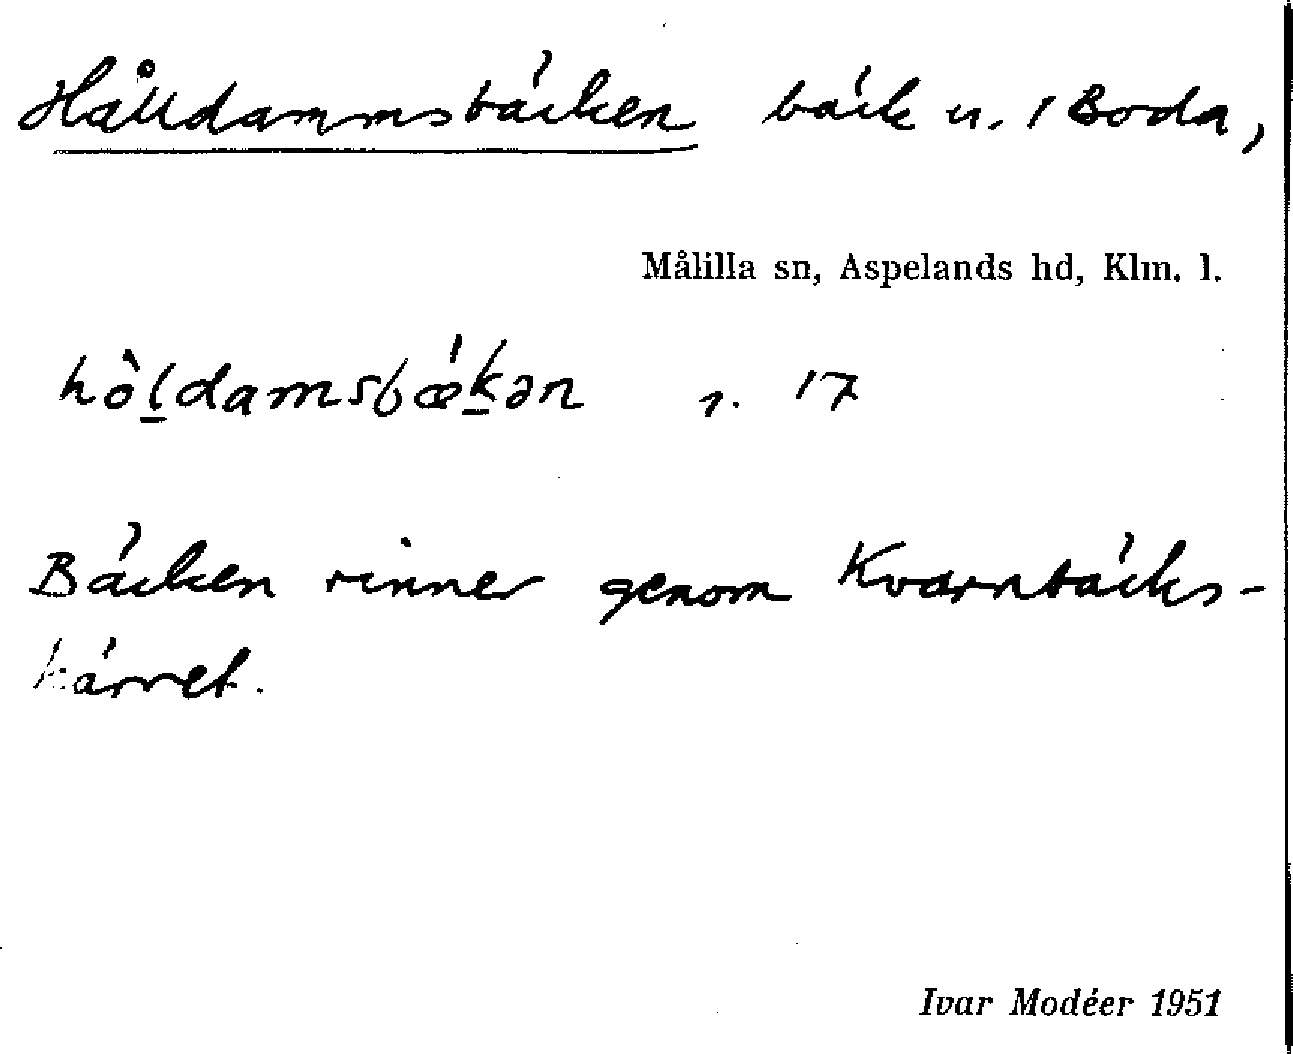 Hålldammsbäcken bäck u. / Boda,
Målilla sn, Aspelands hd, Klm. l.
hòl̠damsbǽk̠ən 1. 17
Bäcken rinner genom Kvarnbäcks-
kärret.
Ivar Modéer 1951